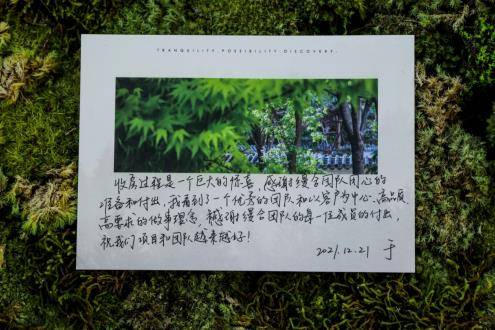 TRANQUILITY.POSSIBILITY.DISCOVERY.
收房过程是一个巨大的惊喜，感谢缦合团队用心的
准备和付出，我看到了一个优秀的团队和以客户为中心、高品质、
高要求的做事理念，感谢缦合团队的每一位成员的付出，
祝我们项目和团队越来越好！
2021.12.21 于